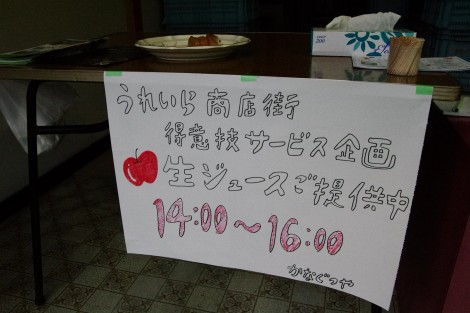 うれいら商店街
得意技サービス企画
生ジュースご提供中
14:00～16:00
かなぐつや